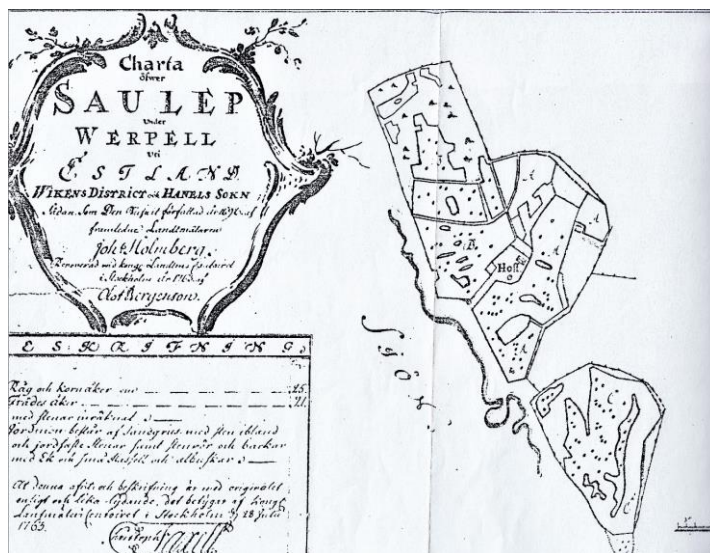 Charta
öfwer
SAULEP
under
WERPELL
uti
ESTLAND
WIKENS DISTRICT och HANELS SOKN
Sådan Som Den af
framledne Landtmätaren
Joh: Holmberg
i Stockholm
Olof Bergenson.
ESKRIFNING
Råg och Kornåker 25
Trädes åker 21
med stenar inräknat
Jordmon består af Sandgrus med sten ibland
och jordfaste Stenar samt stenrör och backar
med Ek och små Hassell och albuskar
At denna afrit och beskrifning är med originalet
enligt och lika lydande, det betygar af Kongl.
i Stockholm d 28 Julii
1763.
A
A
A
B
Hoff
A
Sjön
C
C